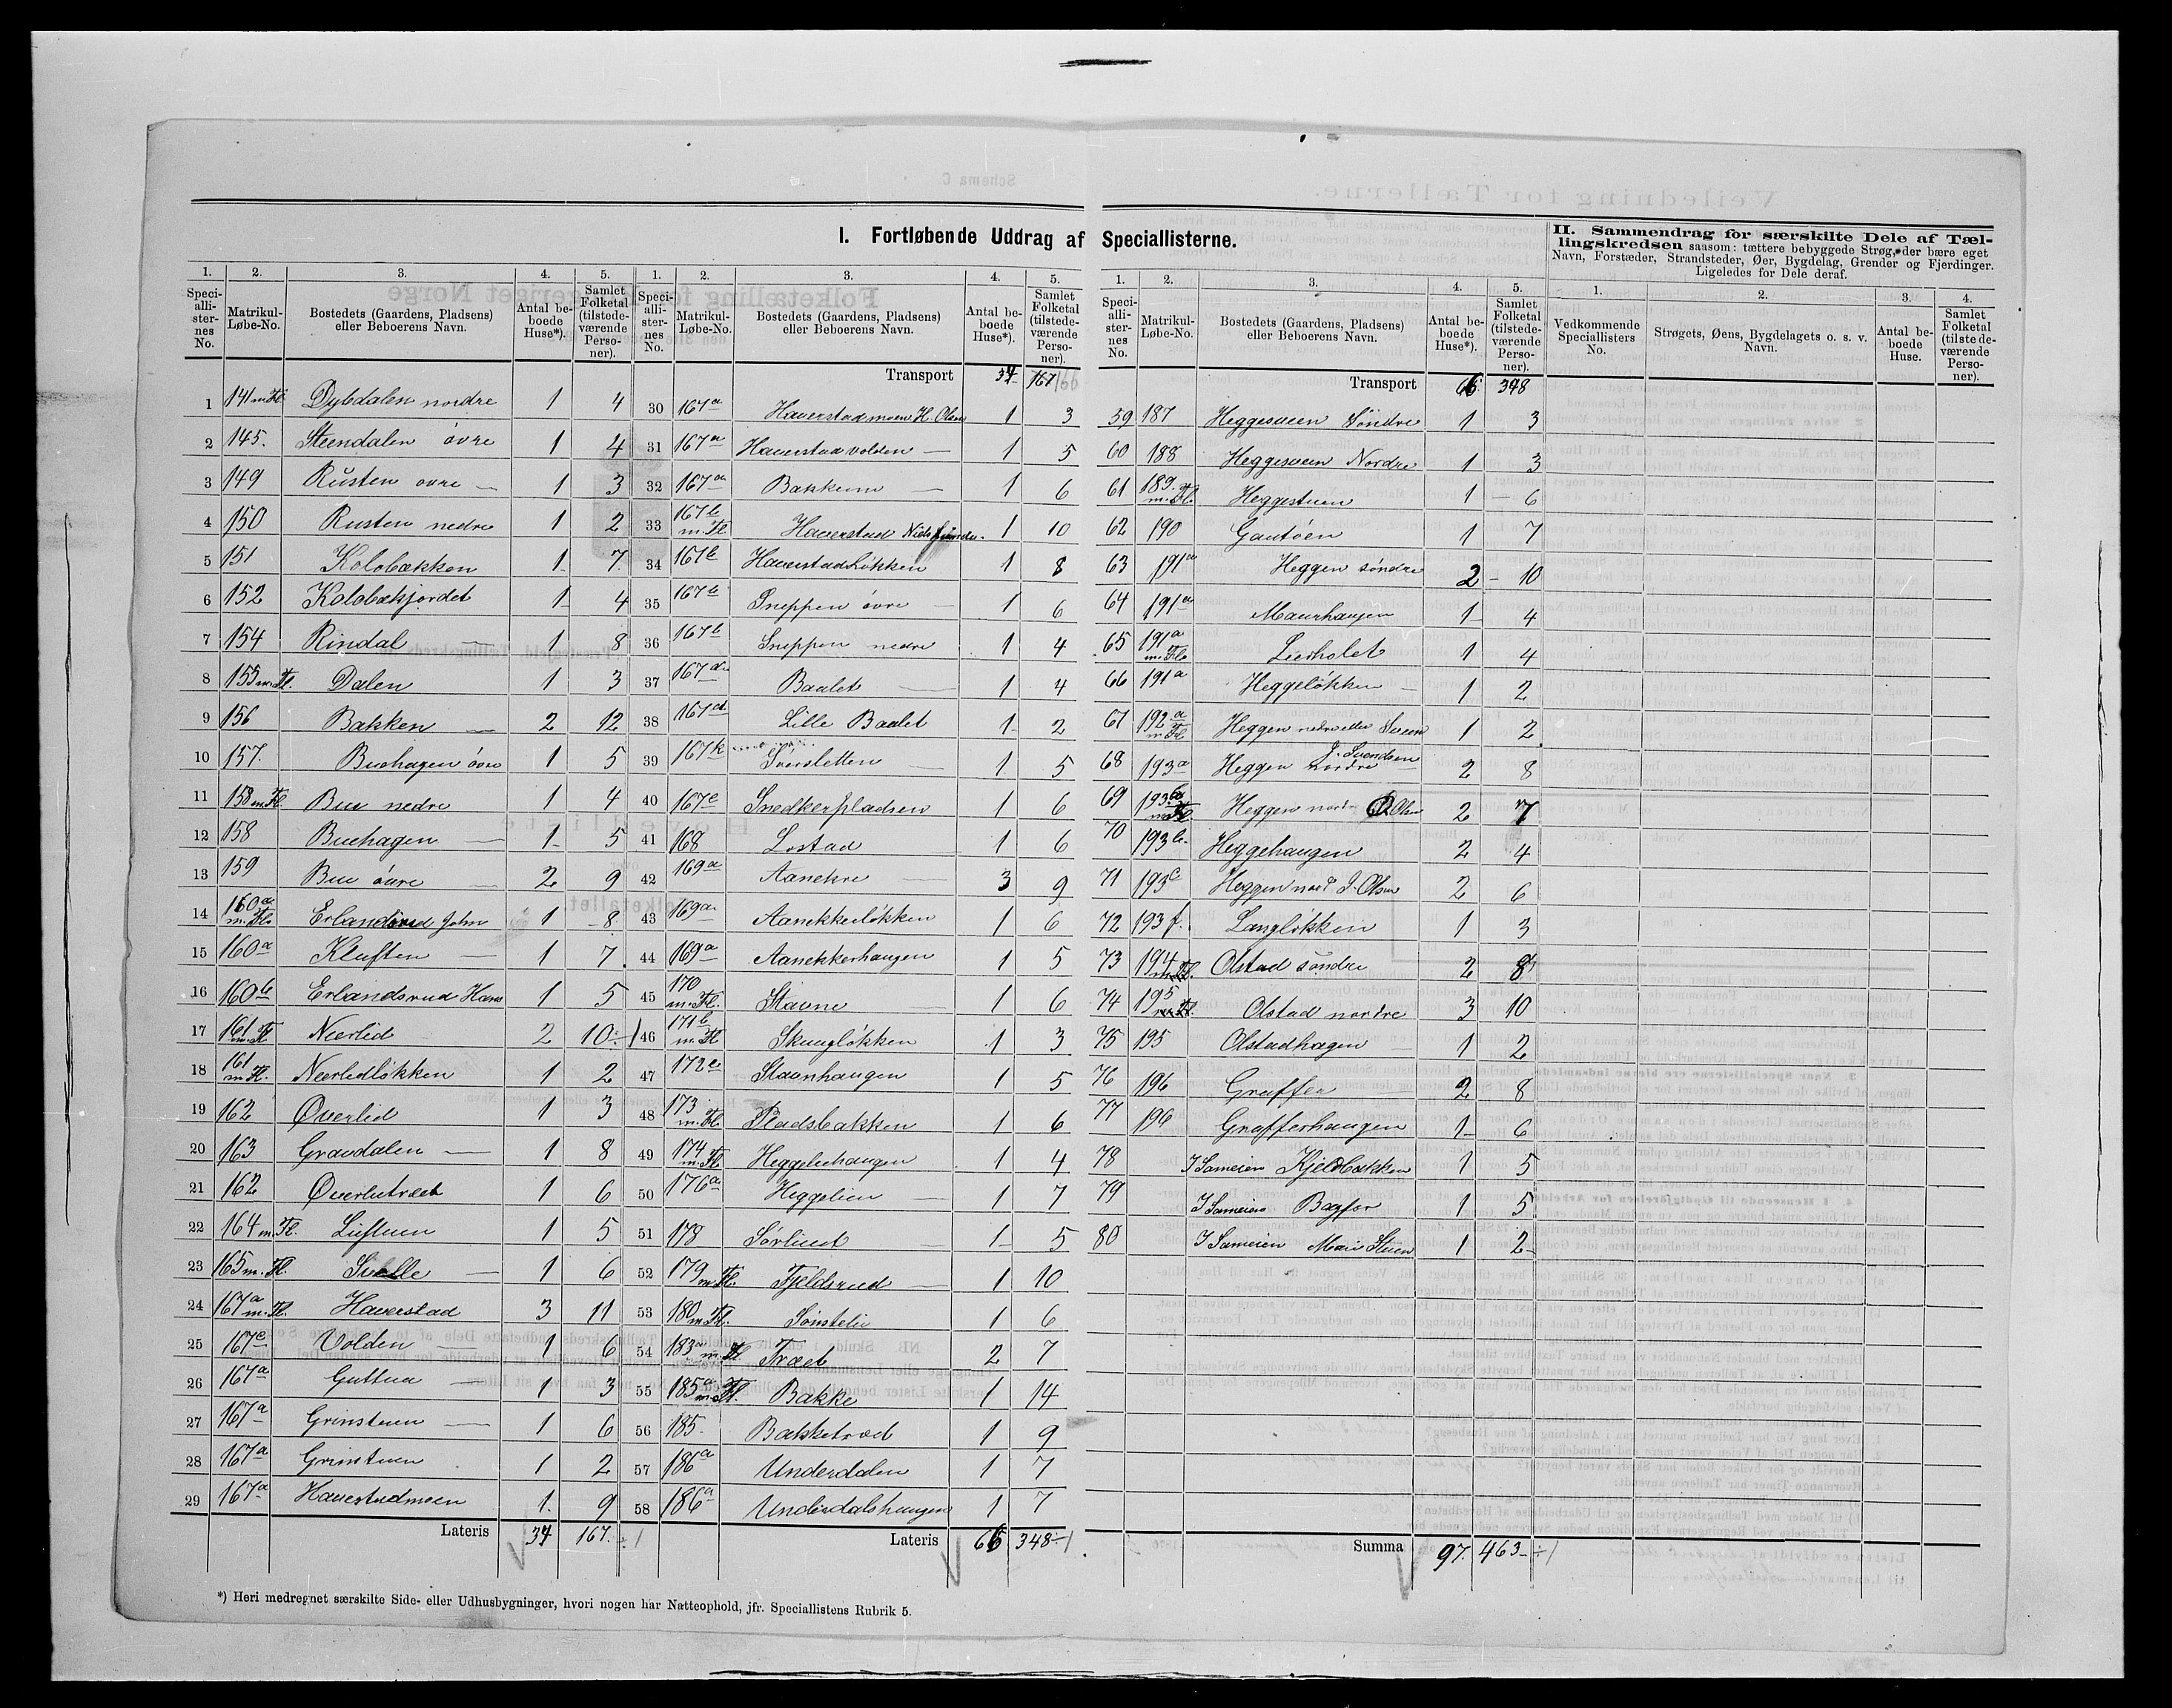 I. Fortløbende Uddrag af Speciallisterne.
II. Sammendrag for særskilte Dele af Tællingskredsen saasom: tættere bebyggede Strøg, der bære eget Navn, Forstæder, Strandsteder, Øer, Bygdelag, Grender og Fjerdinger. Ligeledes for Dele deraf.
1. 2. 3. 4. 5.
Speciallisternes No. Matrikul-Løbe-No. Bostedets (Gaardens, Pladsens) eller Beboerens Navn. Antal beboede Huse*). Samlet Folketal (tilstedeværende Personer).
1 141 m. Fl. Dybdalen nordre 1 4
2 145. Steendalen øvre 1 4
3 149 Rusten øvre 1 3
4 150 Rusten nedre 1 2
5 151 Kolobækken 1 7
6 152 Kolobækjordet 1 4
7 154 Rindal 1 8
8 155 m. Fl. Dalen 1 3
9 156 Bakken 2 12
10 157. Buehagen øvre 1 5
11 158 m. Fl. Bue nedre 1 4
12 158 Buehagen 1 5
13 159 Bue øvre 2 9
14 160a m. Fl. Erlandsrud John 1 8
15 160a Kluften 1 7
16 160b Erlandsrud Hans 1 5
17 161 m. Fl Neerlid 2 10
18 161 m Fl. Neerlidløkken 1 2
19 162 Øverlid 1 3
20 163 Gravdalen 1 8
21 162 Øverlitræet 1 6
22 164 m. Fl. 1 5
23 165 m. Fl. 1 6
24 167a m. Fl. Haverstad 3 11
25 167e Volden 1 6
26 167a Guttua 1 3
27 167a Grinstuen 1 6
28 167a Grinstuen 1 2
29 167a Haverstadmoen 1 9
Lateris 34 167. ÷1
1. 2. 3. 4. 5.
Speciallisternes No. Matrikul-Løbe-No. Bostedets (Gaardens, Pladsens) eller Beboerens Navn. Antal beboede Huse*). Samlet Folketal (tilstedeværende Personer).
Transport 34 167 166
30 167a Haverstadmoen H. Olsen 1 3
31 167a Haverstadvolden 1 5
32 167a Bakkenn 1 6
33 167b m. Fl. Haverstad 1 10
34 167b Haverstadløkken 1 8
35 167b Sneppen øvre 1 6
36 167b Sneppen nedre 1 4
37 167d Baalet 1 4
38 167d Lille Baalet 1 2
39 167k Sversletten 1 5
40 167e Snedkerpladsen 1 6
41 168 Lostad 1 6
42 169a Aanekre 3 9
43 169a Aanekkerløkken 1 6
44 169a Aanekkerhaugen 1 5
45 170 m. Fl. Stavne 1 6
46 171b m. Fl Skougløkken 1 3
47 172e Stavnhaugen 1 5
48 173 m. Fl. Pladsbakken 1 6
49 174 m. Fl Heggeliehaugen 1 4
50 176a Heggelien 1 7
51 178 Sørliedt 1 5
52 179 m. Fl. Fjeldsrud 1 10
53 180 m. Fl. Sønstelie 1 6
54 183a m. Fl Træet 2 7
55 185a m. Fl. Bakke 1 14
56 185. Bakketræet 1 9
57 186a Underdalen 1 7
58 186a Underdalshaugen 1 7
Lateris 66 348 ÷1
1. 2. 3. 4. 5.
Speciallisternes No. Matrikul-Løbe-No. Bostedets (Gaardens, Pladsens) eller Beboerens Navn. Antal beboede Huse*). Samlet Folketal (tilstedeværende Personer).
Transport 66 348
59 187 Heggesveen Søndre 1 3
60 188 Heggesveen Nordre 1 3
61 189. m. Fl. Heggestuen 1 6
62 190 Gautøen 1 7
63 191a Heggen søndre 2 10
64 191a Maurhaugen 1 4
65 191a m. Fl. Lierholet 1 4
66 191a Heggeløkken 1 2
67 192a m Fl. Heggen nedre eller Sveen 1 2
68 193a Heggen nordre J. Svendsen 2 8
69 193b m Fl. Heggen nord O. Olsen 2 7
70 193b. Heggehaugen 2 4
71 193c Heggen nord J. Olsen 2 6
72 193f. Langløkken 1 3
73 194 m. Fl. Olstad søndre 2 8
74 195 m. Fl. Olstad nordre 3 10
75 195 Olstadhagen 1 2
76 196 Graffer 2 8
77 196 Grafferhaugen 1 6
78 I Sameien Kjeldbakken 1 5
79 I Sameien Bagfar 1 5
80 I Sameien Mari Stuen 1 2
Summa 97. 463 ÷1
1. 2. 3. 4.
Vedkommende Speciallisters No. Strøgets, Øens, Bygdelagets o. s. v. Navn. Antal beboede Huse. Samlet Folketal (tilstedeværende Personer).
*) Heri medregnet særskilte Side- eller Udhusbygninger, hvori nogen har Natteophold, jfr. Speciallistens Rubrik 5.